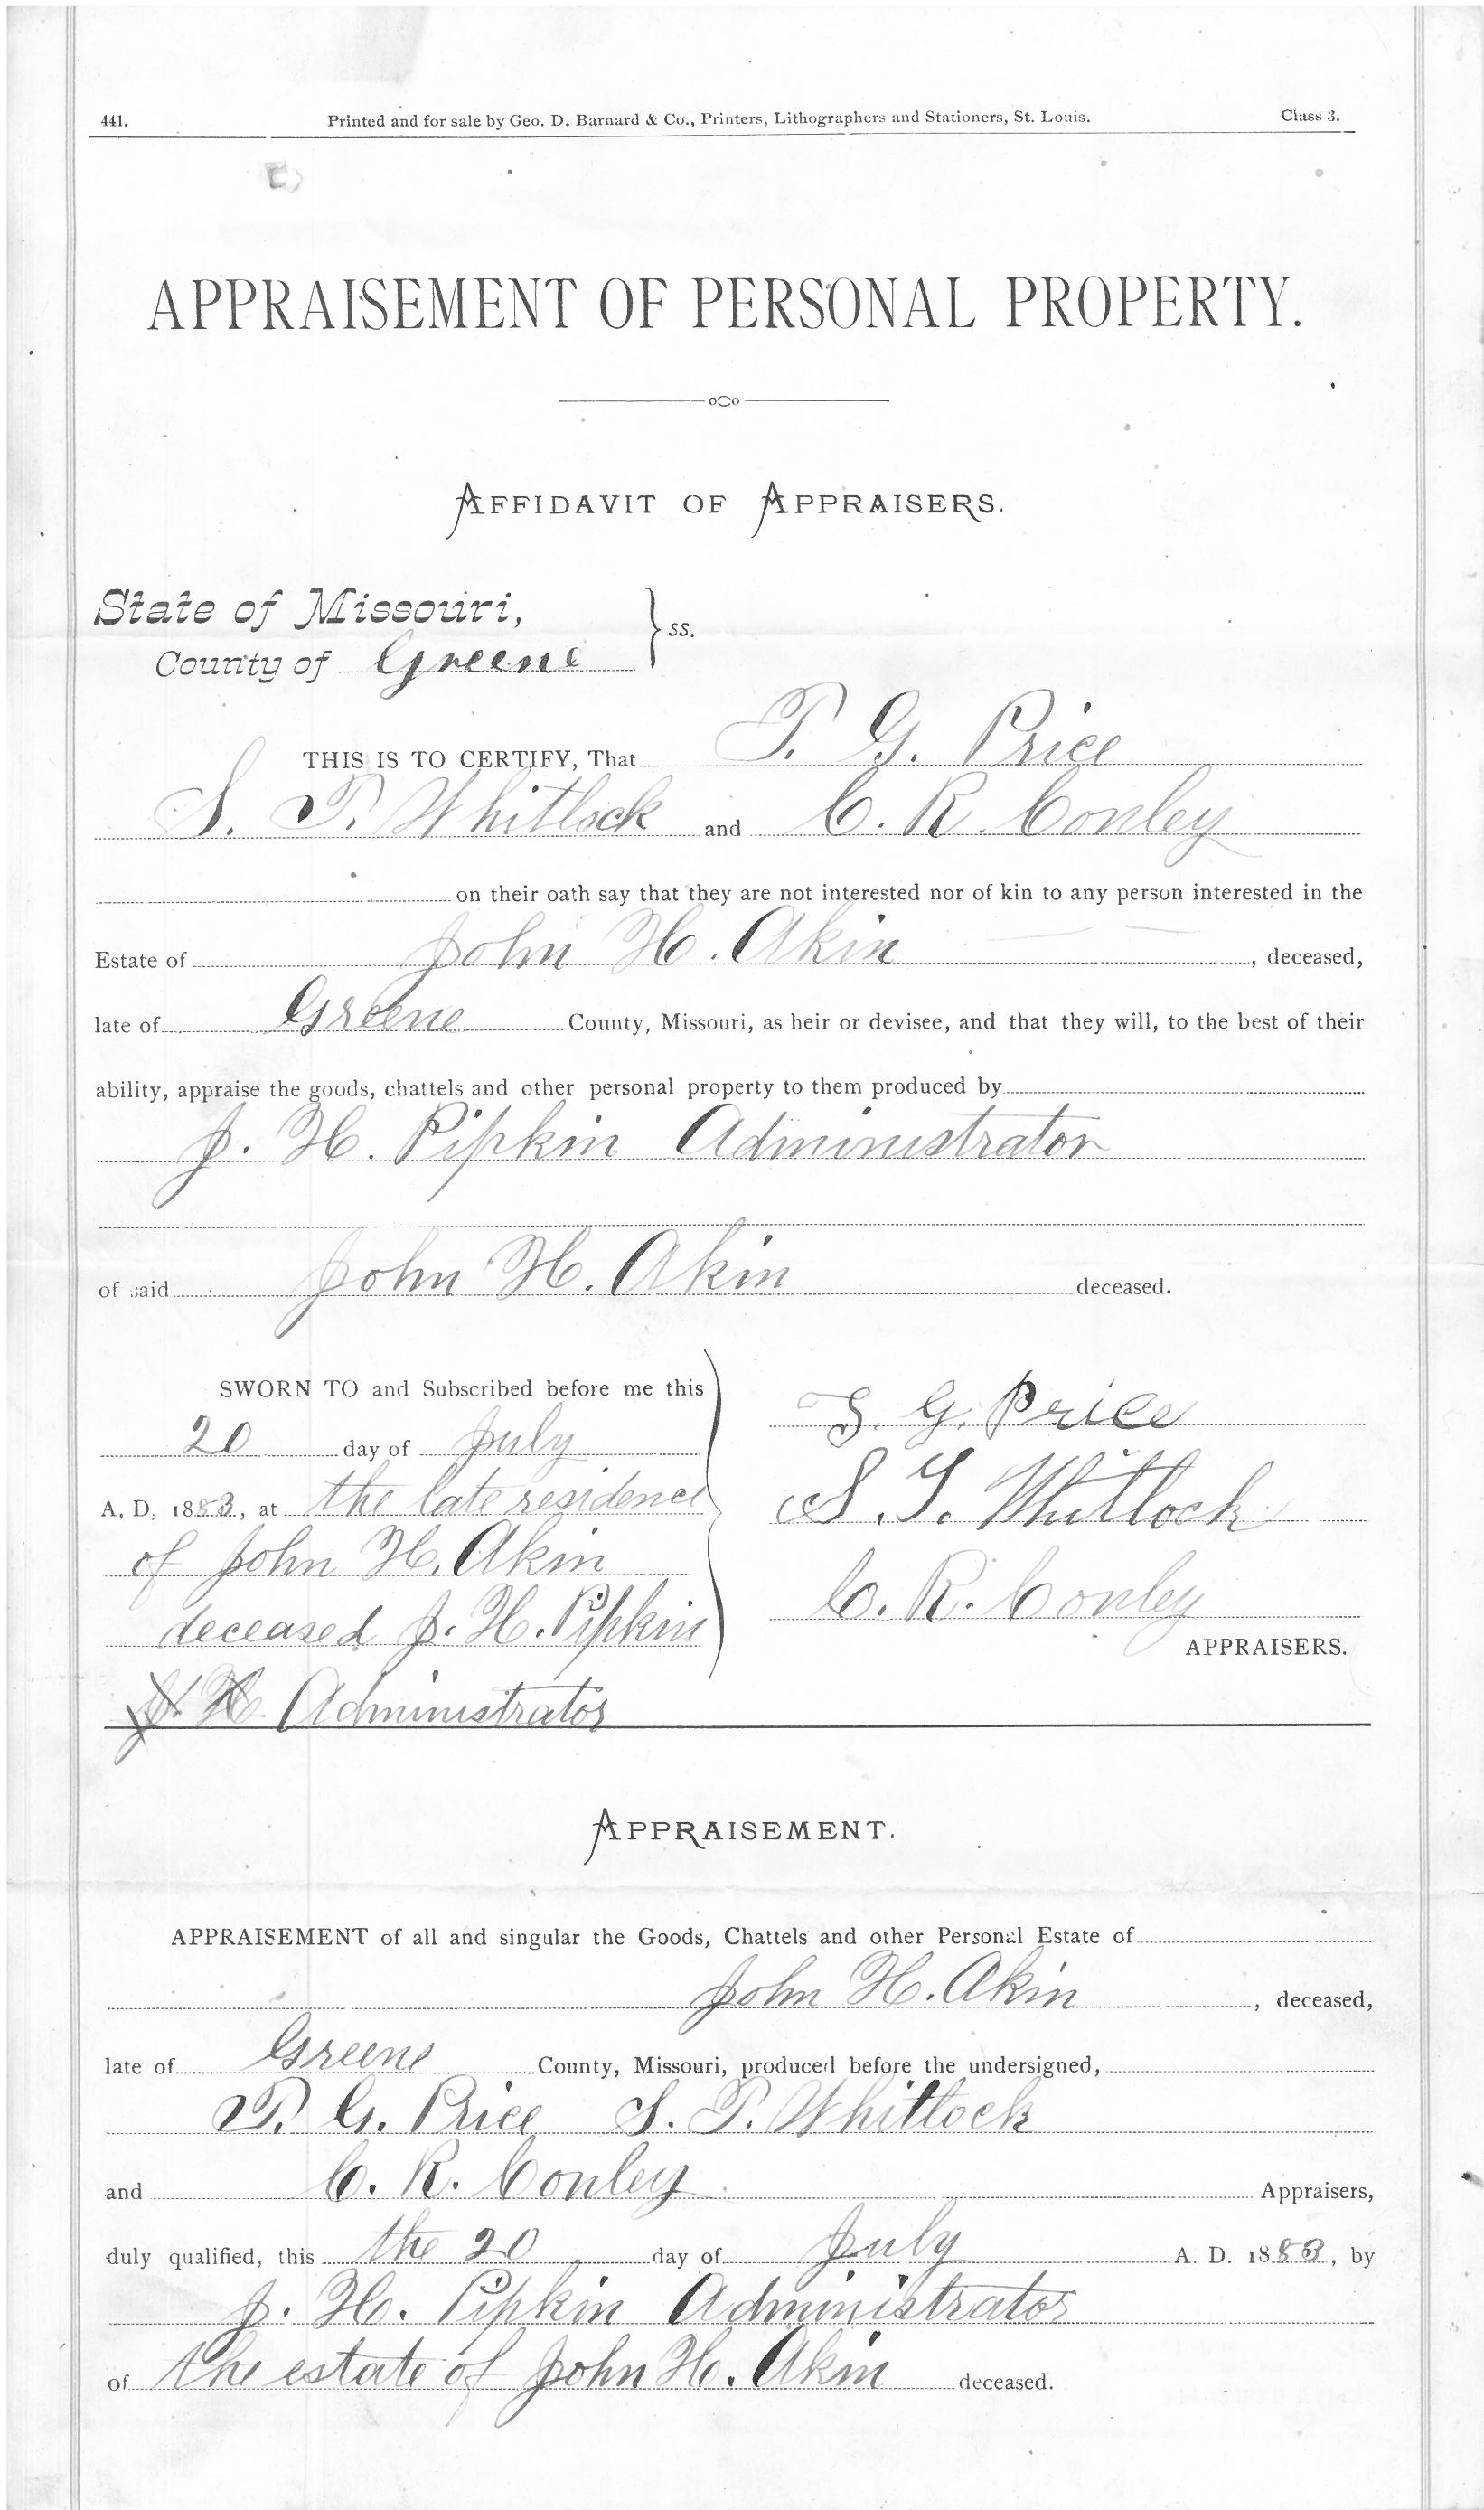 441. Printed and for sale by Geo. D. Barnard & Co., Printers, Lithographers and Stationers, St. Louis. Class 3.
APPRAISEMENT OF PERSONAL PROPERTY.
AFFIDAVIT OF APPRAISERS.
State of Missouri,
County of Greene } ss.
THIS IS TO CERTIFY, That T. G. Price
S. T. Whitlock and C. R. Conley
on their oath say that they are not interested nor of kin to any person interested in the
Estate of John H. Akin, deceased,
late of Greene County, Missouri, as heir or devisee, and that they will, to the best of their
ability, appraise the goods, chattels and other personal property to them produced by
J. H. Pipkin Administrator
of said John H. Akin deceased.
SWORN TO and Subscribed before me this
20 day of July
A. D. 1883, at the late residence
of John H. Akin
deceased J. H. Pipkin
J. H. Administrator
T. G. Price
S. T. Whitlock
C. R. Conley
APPRAISERS.
APPRAISEMENT.
APPRAISEMENT of all and singular the Goods, Chattels and other Personal Estate of
John H. Akin, deceased,
late of Greene County, Missouri, produced before the undersigned,
T. G. Price S. T. Whitlock
and C. R. Conley Appraisers,
duly qualified, this the 20 day of July A. D. 1883, by
J. H. Pipkin Administrator
of the estate of John H. Akin deceased.